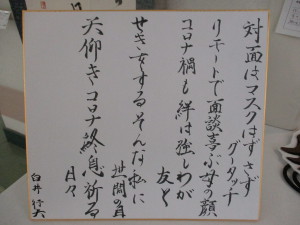 対面はマスクはずさず
グータッチ
リモートで面談喜ぶ母の顔
コロナ禍も絆は強しわが
友と
せきをするそんな私に
世間の目
天仰ぎコロナ終息祈る
日々
臼井